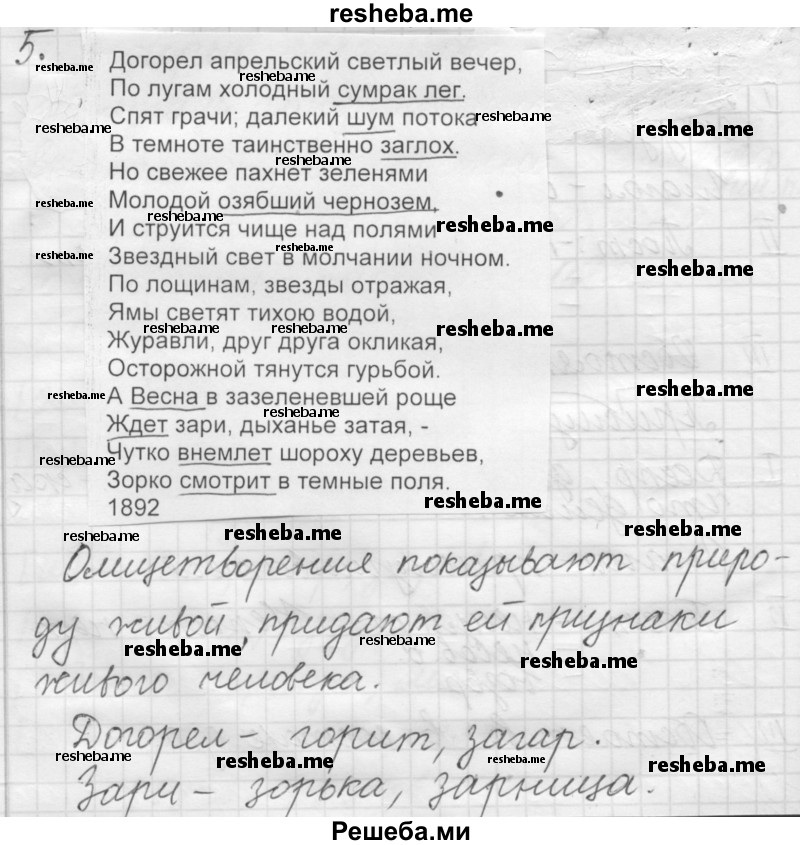 resheba.me
5.
Догорел апрельский светлый вечер,
resheba.me
resheba.me
По лугам холодный сумрак лег.
resheba.me
Спят грачи; далекий шум потока
resheba.me
resheba.me
resheba.me
В темноте таинственно заглох.
Но свежее пахнет зеленями
Молодой озябший чернозем,
resheba.me
resheba.me
И струится чище над полями
resheba.me
resheba.me
Звездный свет в молчании ночном.
resheba.me
resheba.me
По лощинам, звезды отражая,
Ямы светят тихою водой,
resheba.me
resheba.me
resheba.me
Журавли, друг друга окликая,
Осторожной тянутся гурьбой.
resheba.me
resheba.me
А Весна в зазеленевшей роще
resheba.me
Ждет зари, дыханье затая, -
Чутко внемлет шороху деревьев,
resheba.me
Зорко смотрит в темные поля.
resheba.me
1892
resheba.me
resheba.me
resheba.me
Олицетворения показывают приро-
ду живой, придают ей признаки
resheba.me
resheba.me
resheba.me
живого человека.
Догорел - горит, загар.
resheba.me
resheba.me
resheba.me
resheba.me
Зари - зорька, зарница.
Решеба.ми